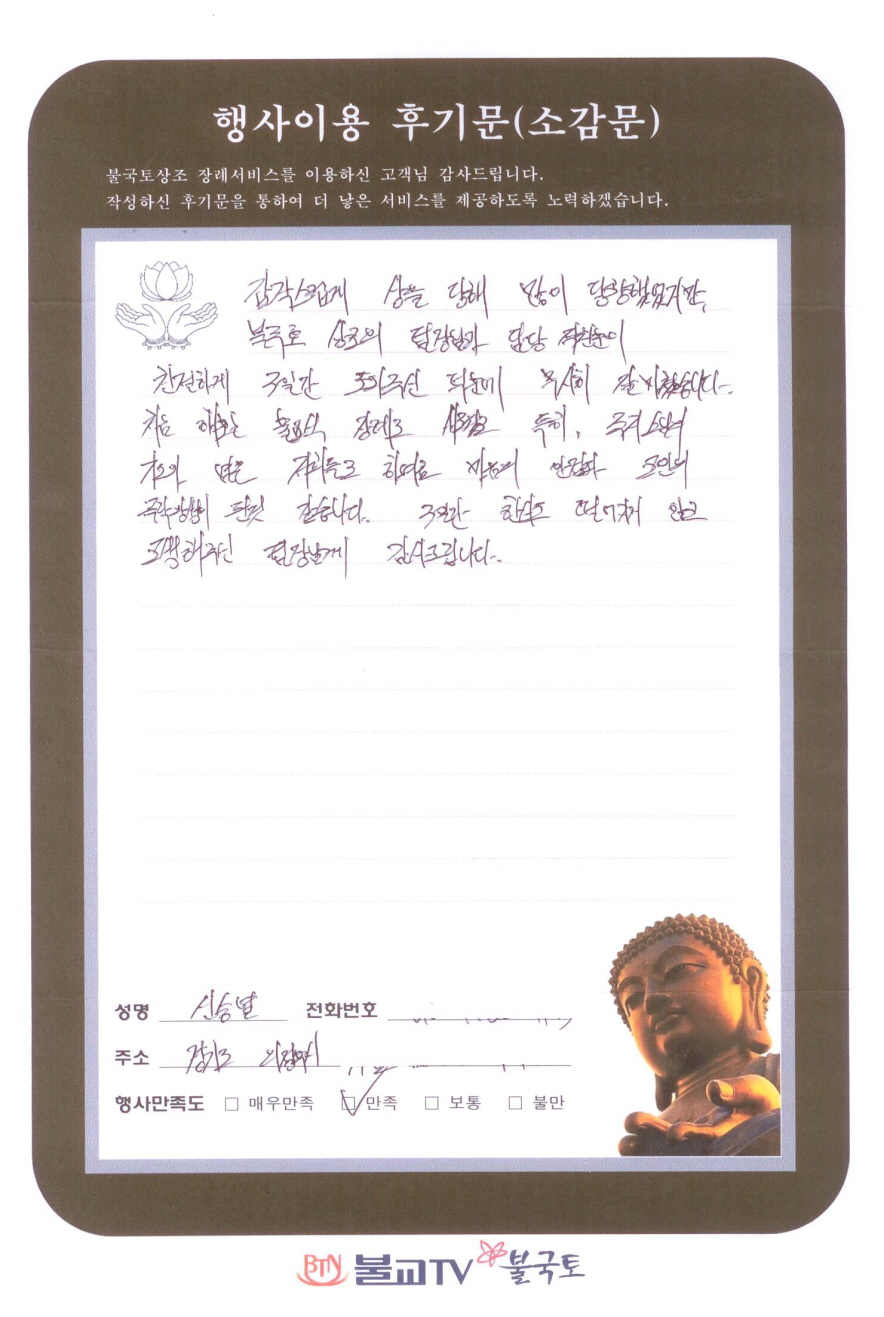 행사이용 후기문(소감문)
불국토상조 장례서비스를 이용하신 고객님 감사드립니다.
작성하신 후기문을 통하여 더 낳은 서비스를 제공하도록 노력하겠습니다.
갑작스럽게 상을 당해 많이 당황했었지만,
불국토 상조의 팀장님과 담당 직원분이
친절하게 3일간 도와주신 덕분에 무사히 잘 치렀습니다.
처음 해보는 불교식 장례로 특히,
마음의 안정과 고인의
된것 같습니다. 3일간 한시도 떨어지지 않고
고생해주신 팀장님께 감사드립니다.
성명 신승열 전화번호
주소 경기도 의정부시
행사만족도 □ 매우만족 ☑ 만족 □ 보통 □ 불만
BTN 불교TV 불국토